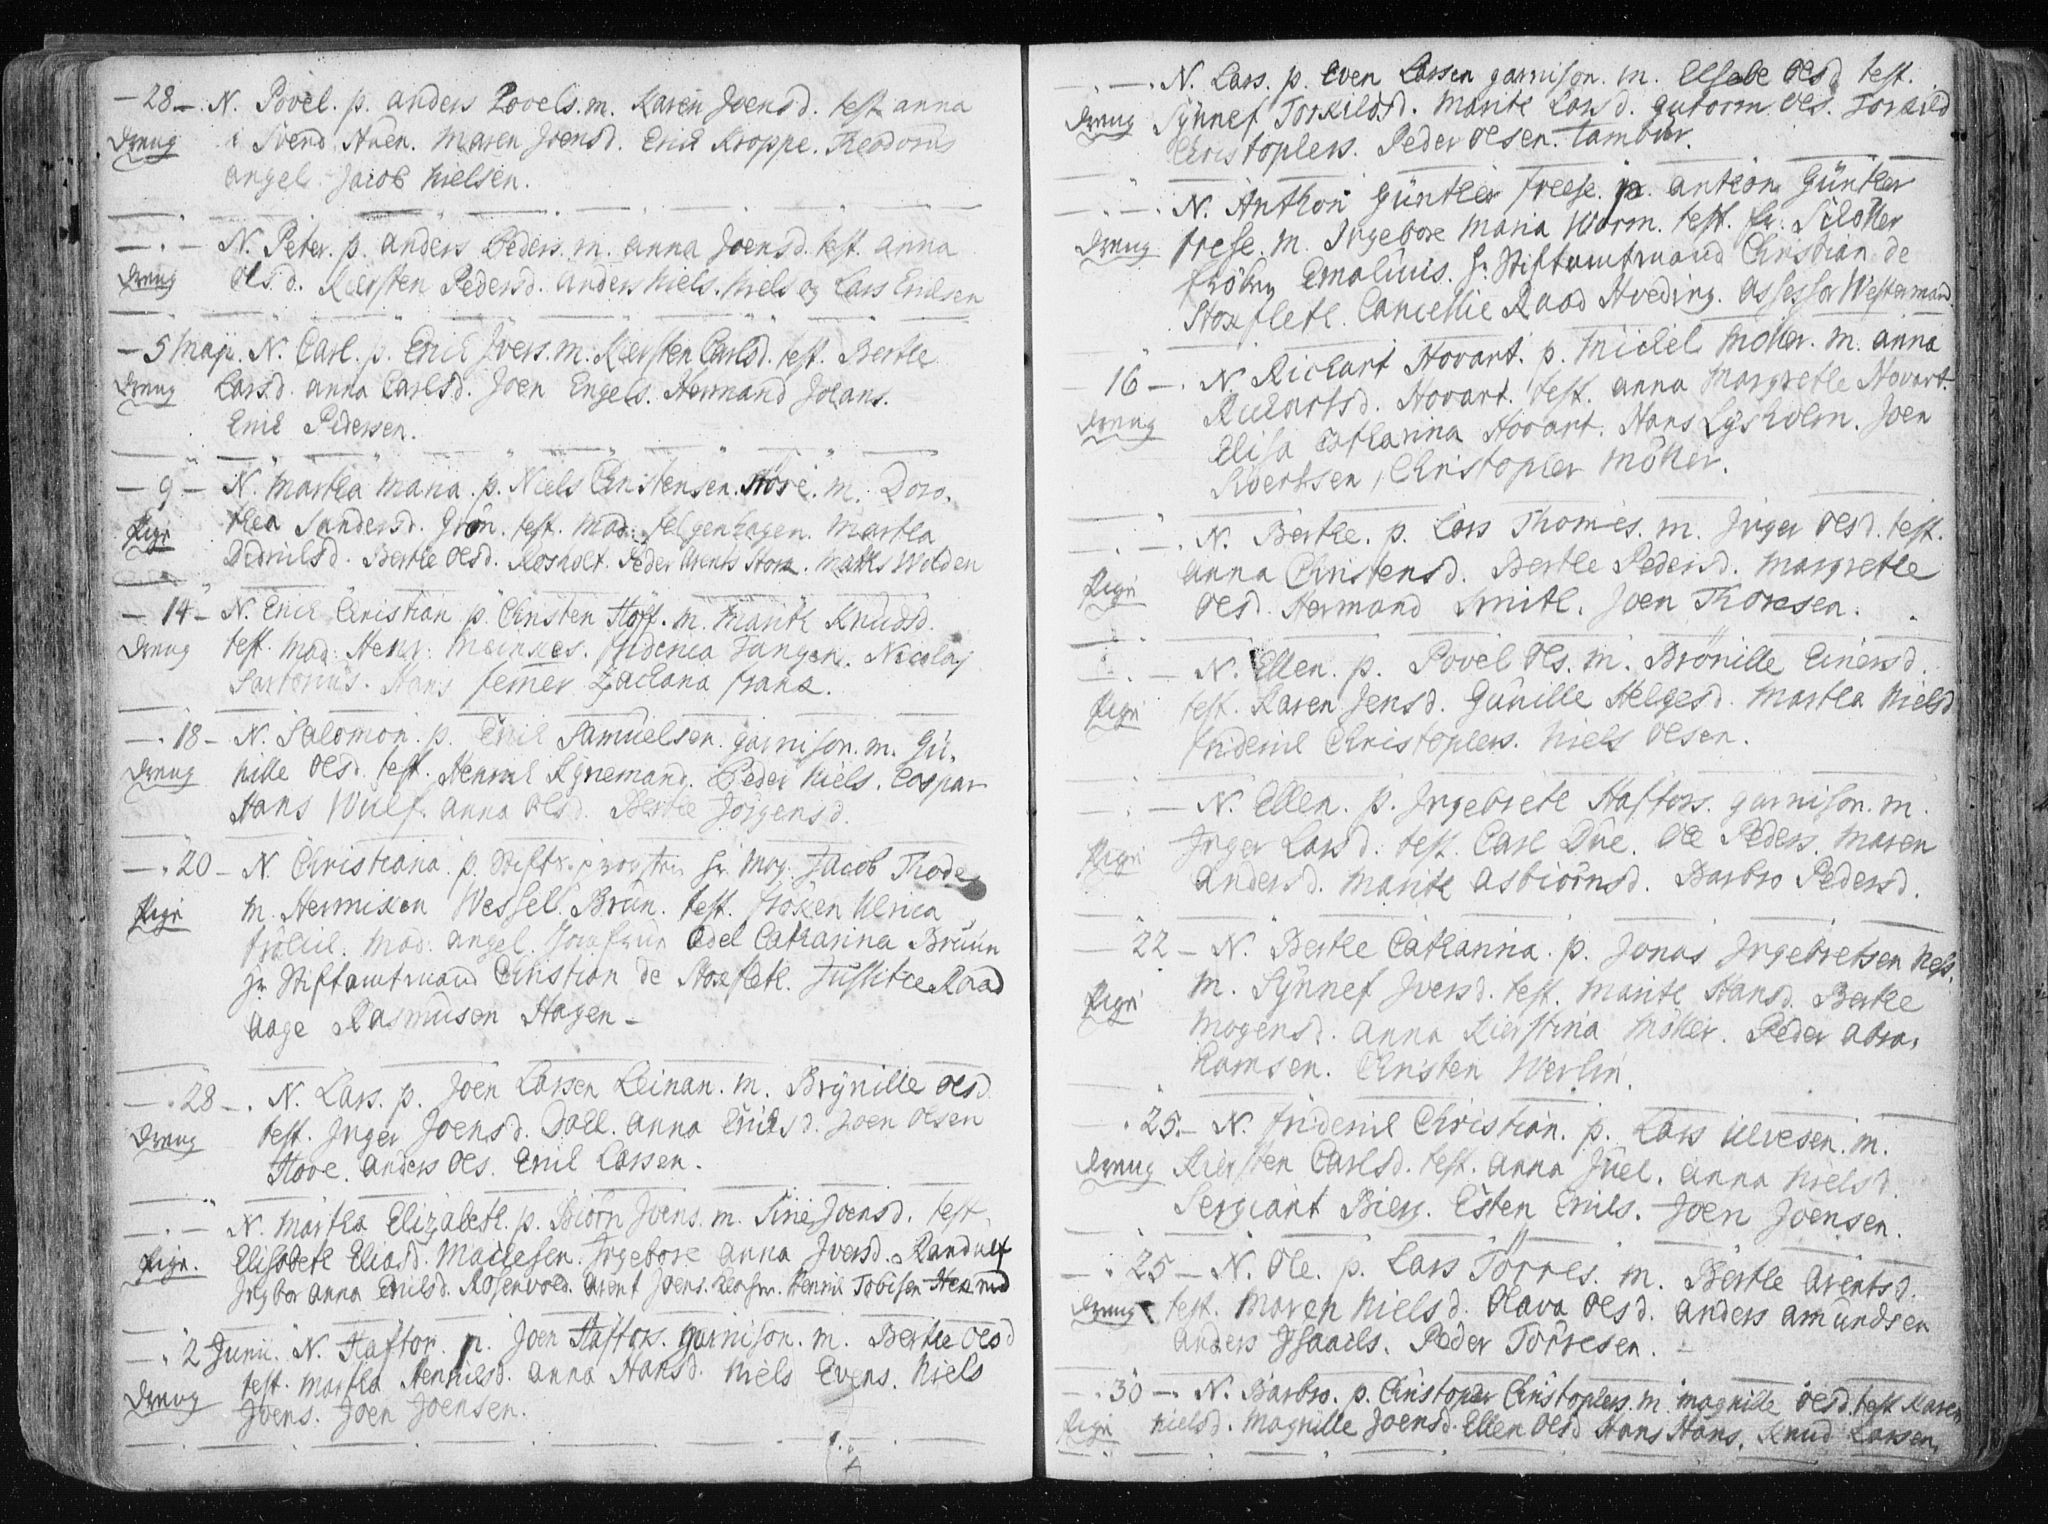 – 28 –. N. Povel. p. anders Povels. m. Karen Joensd. test anna
dreng
i Svend Huen. Maren Joensd. Erich Kroppe. Theodorus
angel. Jacob Nielsen.
– . – N. Peter. p. anders Peders. m. anna Joensd. test. anna
dreng
Olsd. Kiersten Pedersd. anders Niels. Niels og Lars Ericksen
– 5 Maji. N. Carl. p. Erich Ivers. m. Kiersten Carlsd. test. Berthe
dreng
Larsd. anna Carlsd. Joen Engels. Hermand Johans.
Erich Pedersen.
– 9 – N. Martha Maria. p. Niels Christensen. m. Doro,
pige
thea Sandersd. Grön. test. Mad: felgenhagen. Martha
Berthe Olsd. Peder Arents
– 14 – N. Erich Christian p. Christen Hoff. m. Marith Knudsd.
dreng
test. Mad: Henr: Meinkes. friderica Tangen. Nicolaj
Sartorius. Hans ferner Zacharia frank.
– . 18 – N. Salomon. p. Erich Samuelsen. garnison. m. Gu,
dreng
nille Olsd. test. Henrich Rynemand. Peder Niels. Caspar
Hans Wulf. anna Olsd. Berthe Jörgensd.
– . 20 – N. Christiana. p. Stifts provsten Hr. Mag. Jacob Thode
pige
m. Hermiken Wessel Brün. test. fröken Ulrica
frölich. Mad: angel. Jomfrue Edel Catharina Bruun
Hr. Stiftamtmand Christian de Stokfleth. Justitce Raad
aage Rasmusen Hagen –
– . 28 – . N. Lars. p. Joen Larsen Leinan. m. Brynille Olsd
dreng
test. Inger Joensd. Dahl. anna Erichsd. Joen Olsen
Hove. anders Ols. Erich Larsen.
– . – N. Martha Elizabeth. p. Biörn Joens. m. Siri Joensd. test.
pige.
Elisabeth Eliasd. Ingebor anna Iversd. Randulf
Ingbor anna Erichsd. Rosenvold. arent Joens. Henrich
– . 2 Junii. N. Haftor. p. Joen Haftors. garnison. m. Berthe Olsd
dreng
test. Martha Henrichsd. anna Hansd. Niels Evens. Niels
Joens. Joen Joensen.
– . – . N. Lars. p. Even Larsen garnison. m. Elsebe Olsd test.
dreng
Synnef Torkildsd. Marith Larsd. gutorm Ols. Torkild
Christophers. Peder Olsen. Tambur.
– . – . N. Anthon Günther freese. p. anthon Günther
dreng
frese. m. Ingebor Maria Worm. test. fr: Silöher
fröken Emalinis. Hr. Stiftamtmand Christian de
Stokfleth. Cancellie Raad Hveding. Assessor Westermand.
– 16 – . N. Richart Hovart. p. Michel Möller. m. anna
dreng
Richartsd. Hovart. test. anna Margrethe Hovart.
Elisa Catharina Hovart. Hans Lysholm. Joen
Sivertsen, Christopher Möller.
– . – . N. Berthe. p. Lars Thomes. m. Inger Olsd. test.
pige
anna Christensd. Berthe Pedersd. Margrethe
Olsd. Hermand Smith. Joen Thoresen.
– . – N. Ellen. p. Povel Ols. m. Brönille Einersd.
pige
test. Karen Jensd. Gunille Helgesd. Martha Nielsd
friderich Christophers. Niels Olsen.
– . – N. Ellen. p. Ingebreth Haftors. garnison. m.
pige
Inger Larsd. test. Carl Due. Ole Peders. Maren
Andersd. Marith Asbiörnsd. Barbro Pedersd.
– 22 – N. Berthe Catharina. p. Jonas Ingebretsen Ness.
pige
m. Synnef Iversd. test. Marith Hansd. Berthe
Mogensd. anna Kierstina Möller. Peder abra,
hamsen. Christen Werlin.
. 25. – N. friderich Christian. p. Lars Ulvesen. m.
dreng
Kiersten Carlsd. test. anna Juel. anna Nielsd.
Sergiant Biers. Esten Erichs. Joen Joensen.
– . 25 – N. Ole. p. Lars Törres. m. Berthe arentsd.
dreng
test. Maren Nielsd. Olava Olsd. anders amundsen
anders Isaachs. Peder Törresen.
– . 30 – . N. Barbro. p. Christopher Christophers. m. Magnille Olsd. test Karen
pige
Nielsd. Magnille Joensd. Ellen Olsd Hans Hans. Knud Larsen.